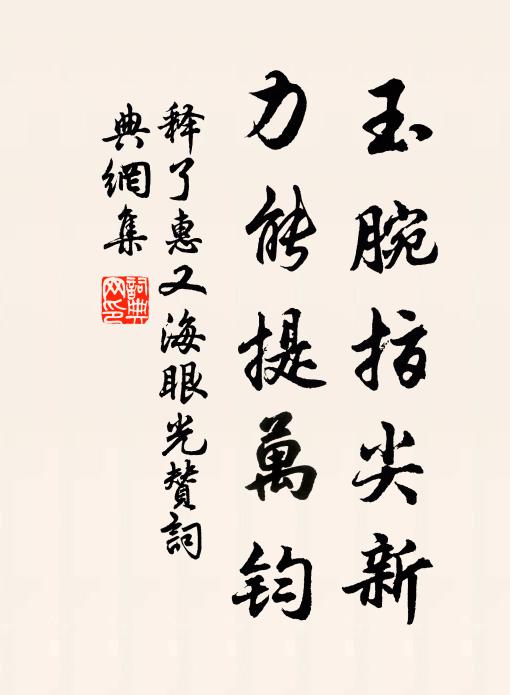 玉腕指尖新
力能提萬鈞
释了惠又海眼光贊詞
典網集
詞典
网印